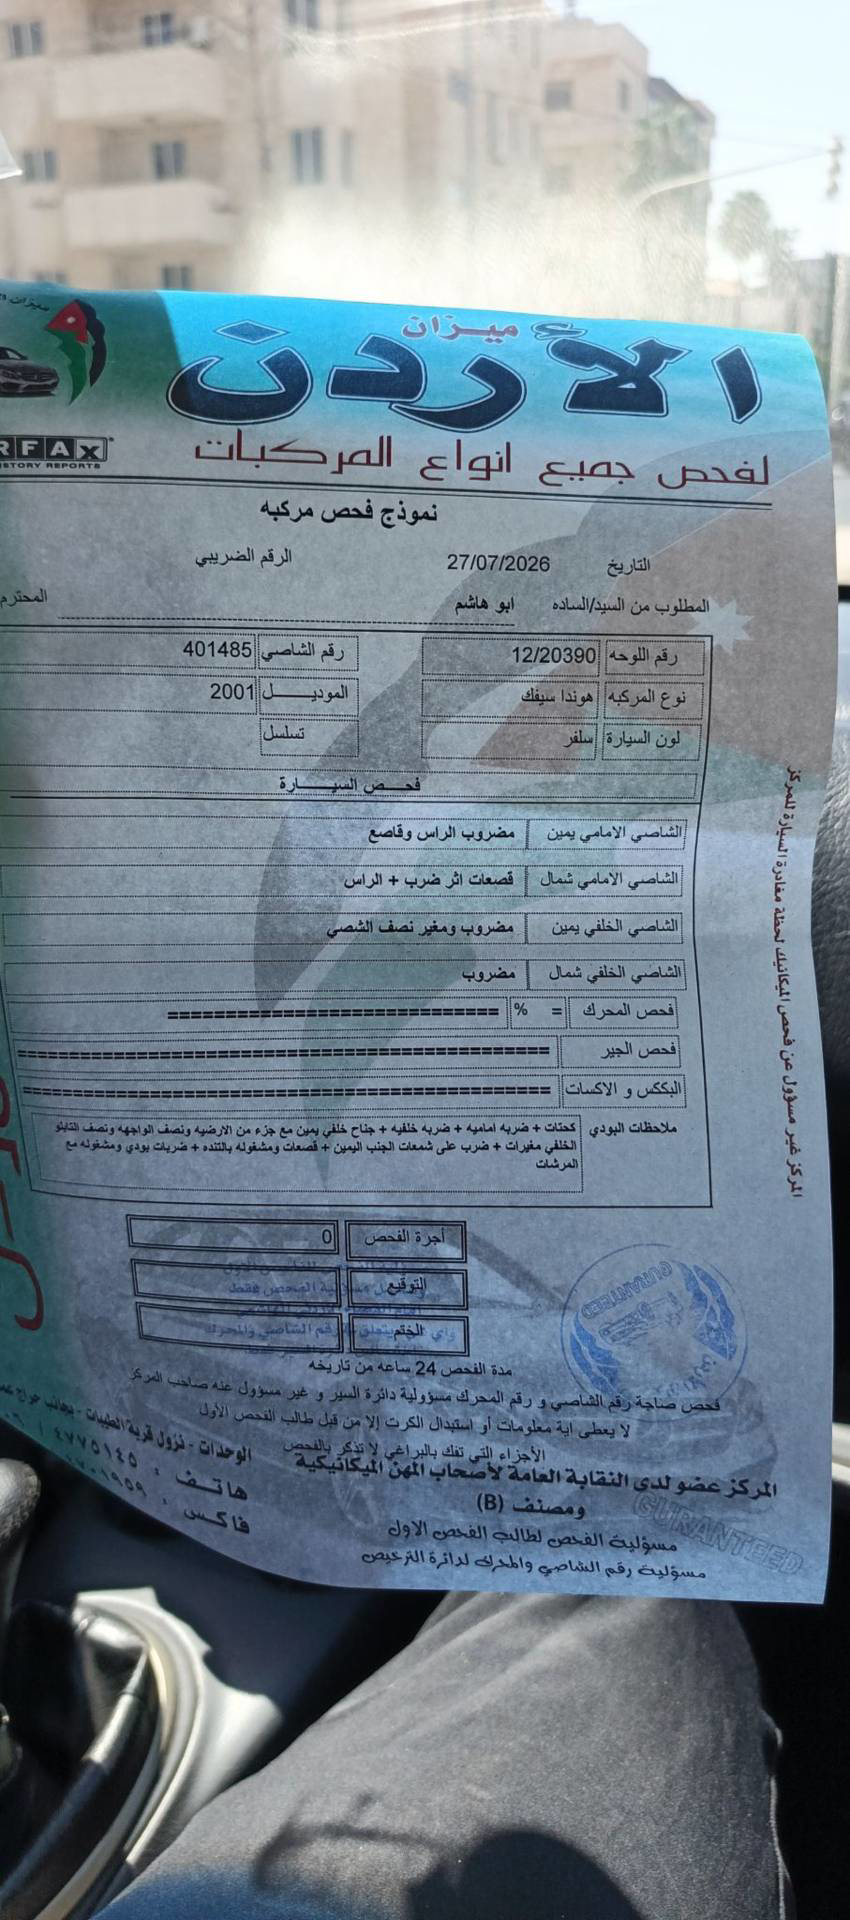 ميزان
الأردن
RFAX
STORY REPORTS
لفحص جميع انواع المركبات
نموذج فحص مركبه
التاريخ 27/07/2026 الرقم الضريبي
المطلوب من السيد/الساده ابو هاشم المحترم
رقم اللوحه 12/20390 رقم الشاصي 401485
نوع المركبه هوندا سيفك الموديل 2001
لون السيارة سلفر تسلسل
فحص السيارة
الشاصي الامامي يمين مضروب الراس وقاصع
الشاصي الامامي شمال قصعات اثر ضرب + الراس
الشاصي الخلفي يمين مضروب ومغير نصف الشصي
الشاصي الخلفي شمال مضروب
فحص المحرك = % =============================
فحص الجير ==============================================
البككس و الاكسات ==============================================
ملاحظات البودي كحتات + ضربه اماميه + ضربه خلفيه + جناح خلفي يمين مع جزء من الارضيه ونصف الواجهه ونصف التابلو
الخلفي مغيرات + ضرب على شمعات الجنب اليمين + قصعات ومشغوله بالتنده + ضربات بودي ومشغوله مع
المرشات
المركز غير مسؤول عن فحص الميكانيك لحظة مغادرة السيارة للمركز
أجرة الفحص 0
التوقيع
الختم
GURANTEED
مدة الفحص 24 ساعه من تاريخه
فحص صاحة رقم الشاصي و رقم المحرك مسؤولية دائرة السير و غير مسؤول عنه صاحب المركز
لا يعطى اية معلومات أو استبدال الكرت إلا من قبل طالب الفحص الأول
الأجزاء التي تفك بالبراغي لا تذكر بالفحص
المركز عضو لدى النقابة العامة لأصحاب المهن الميكانيكية
ومصنف (B)
مسؤولية الفحص لطالب الفحص الاول
مسؤولية رقم الشاصي والمحرك لدائرة الترخيص
GURANTEED
الوحدات - نزول قرية الطيبات - بجانب حراج
هاتف : ٤٧٧٥١٤٥
فاكس :